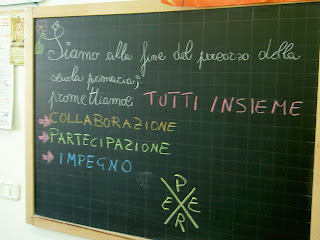 Siamo alla fine del percorso della
scuola primaria;
promettiamo: TUTTI INSIEME
COLLABORAZIONE
PARTECIPAZIONE
IMPEGNO
P
E E
R